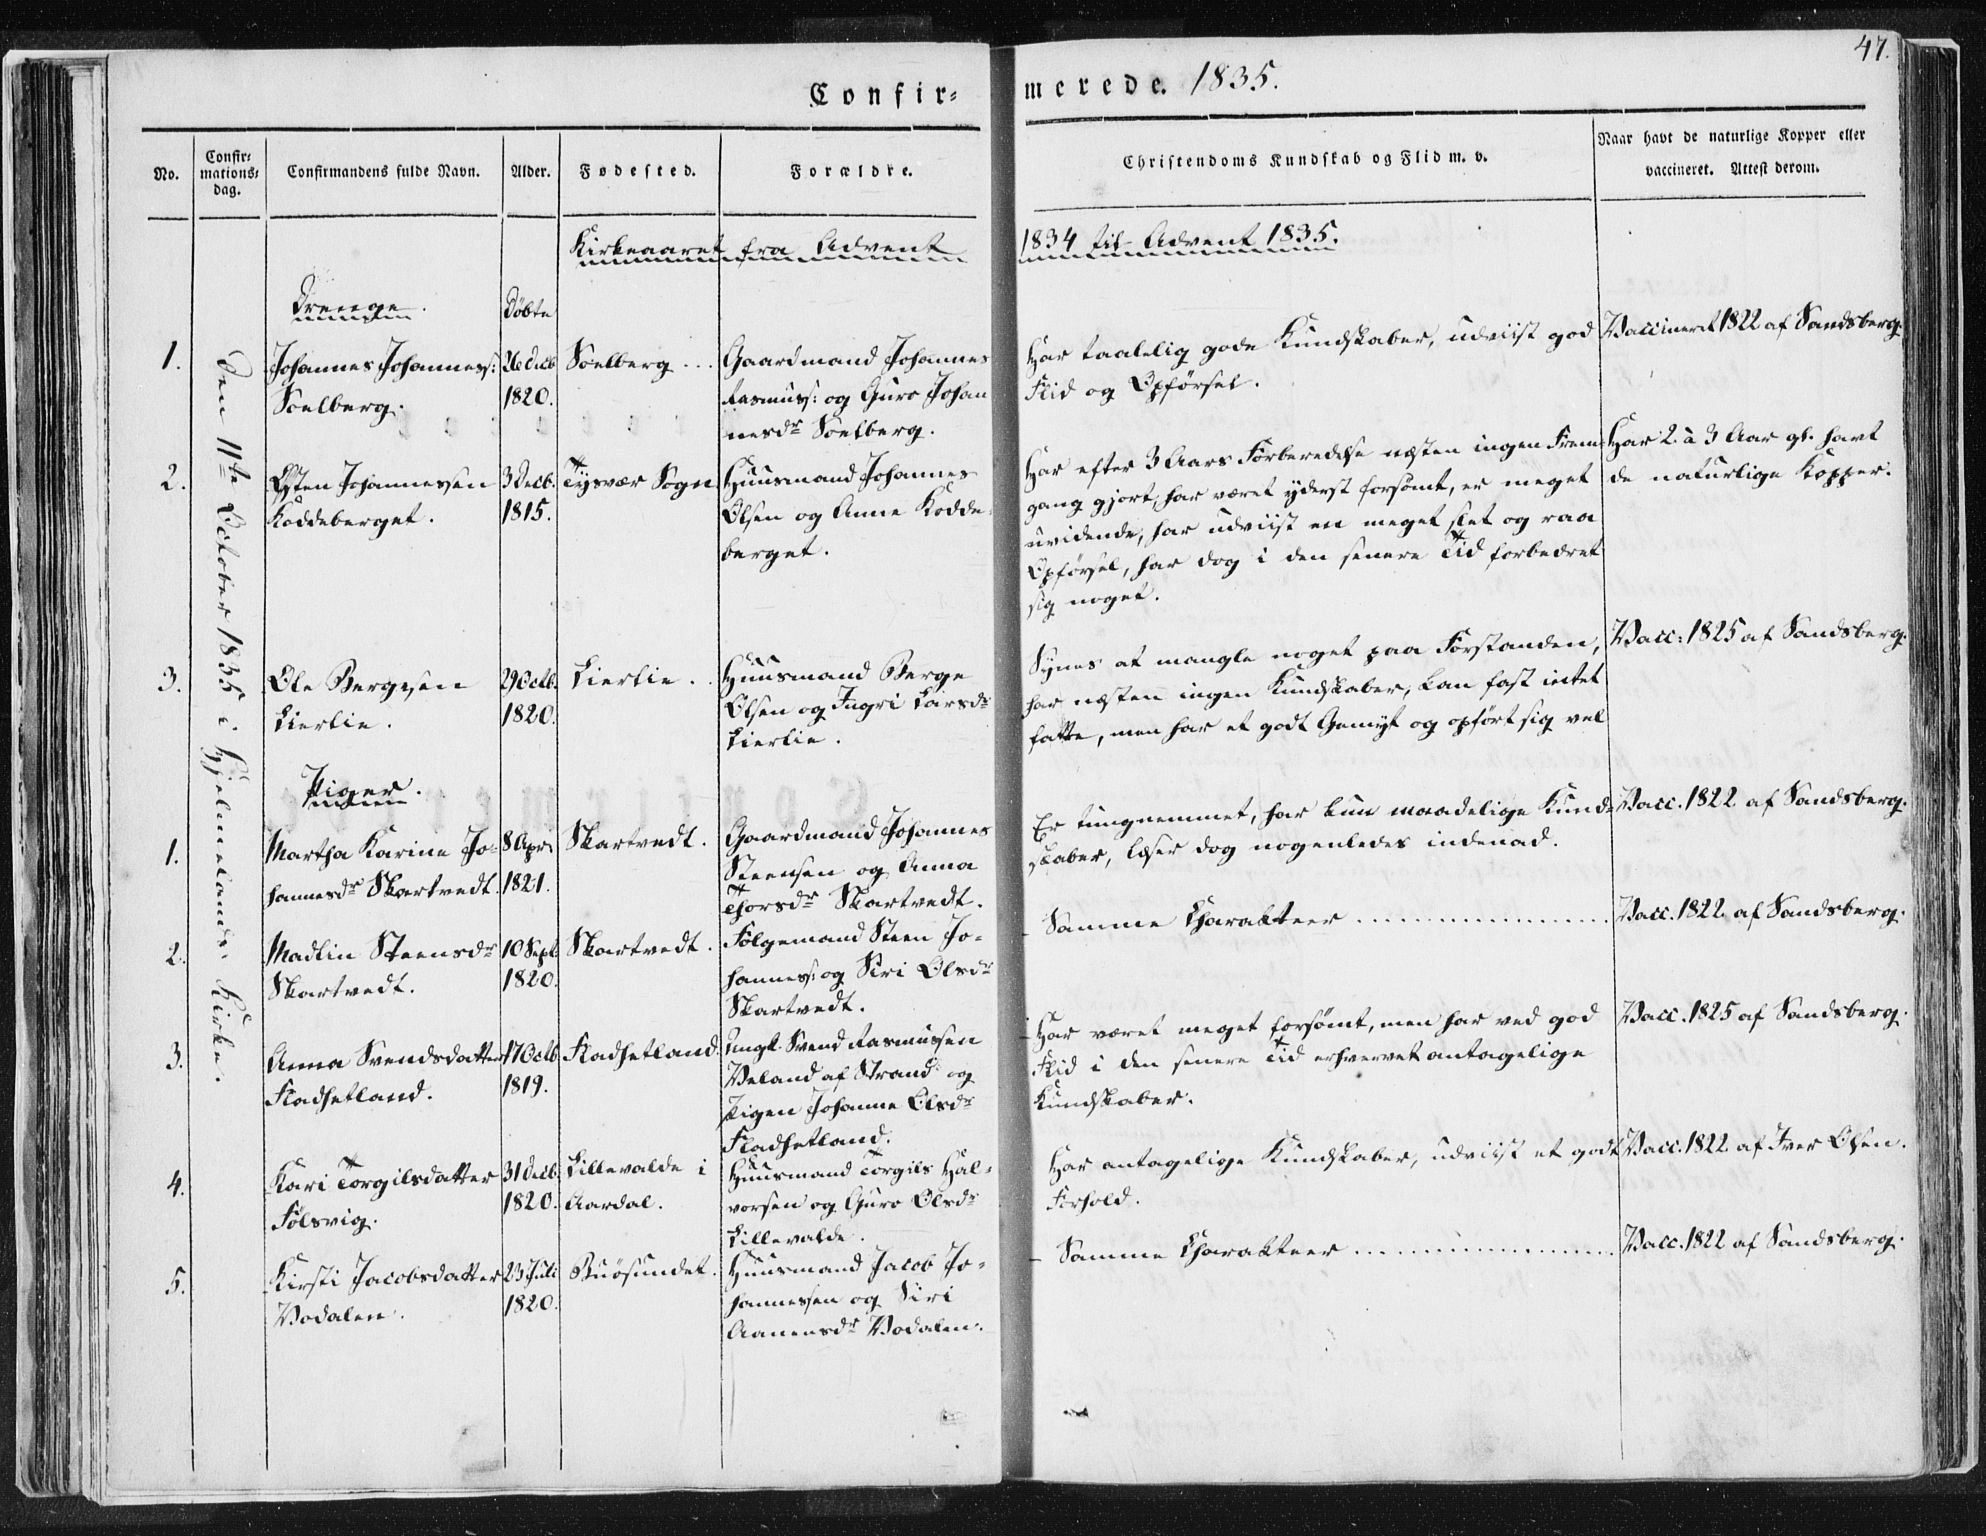 47.
Confir=
merede. 1835.
No.
Confir=
mations=
dag.
Confirmandens fulde Navn.
Alder.
Fødested.
Forældre.
Christendoms Kundskab og Flid m. v.
Naar havt de naturlige Kopper eller
vaccineret. Attest derom.
Kirkeaaret fra Advent
1834 til Advent 1835.
Den 11te October 1835 i Hjelmelands Kirke.
Drenge.
Døbte
1.
Johannes Johanness:
Soelberg.
26 Decb
1820.
Soelberg ...
Gaardmand Johannes
Rasmuss: og Guro Johan
nesdr Soelberg.
Har taalelig gode Kundskaber, udviist god
Flid og Opførsel.
Vaccineret 1822 af Sandsberg.
2.
Østen Johannessen
Koddeberget.
3 Decb.
1815.
Tysvær Sogn
Huusmand Johannes
Olsen og Anne Kodde=
berget.
Har efter 3 Aars Forberedelse næsten ingen Frem=
gang gjort, har været yderst forsømt, er meget
uvidende, har udviist en meget slet og raa
Opførsel, har dog i den senere Tid forbedret
sig noget.
Har 2 à 3 Aar gl. havt
de naturlige Kopper.
3.
Ole Bergesen
Lierlie.
29 Octb.
1820.
Lierlie ..
Huusmand Berge
Olsen og Ingri Larsdr
Lierlie.
Synes at mangle noget paa Forstanden,
har næsten ingen Kundskaber, kan fast intet
fatte, men har et godt Gemyt og opført sig vel
Vacc: 1825 af Sandsberg.
Piger.
1.
Martha Karine Jo=
hannesdr Skartvedt.
8 Apr:
1821.
Skartvedt.
Gaardmand Johannes
Steensen og Anna
Thorsdr Skartvedt.
Er tungnemmet, har kun maadelige Kund=
skaber, læser dog nogenledes indenad.
Vacc. 1822 af Sandsberg.
2.
Madlin Steensdr
Skartvedt.
10 Sept
1820.
Skartvedt.
Følgemand Steen Jo=
hanness: og Siri Olsdr
Skartvedt.
- Samme Charakteer ..................
Vacc. 1822 af Sandsberg.
3.
Anna Svendsdatter
Fladhetland.
17 Octb
1819.
Fladhetland.
Ungk. Svend Rasmussen
Veland af Strand og
Pigen Johanne Olsdr
Fladhetland.
- Har været meget forsømt, men har ved god
Flid i den senere Tid erhvervet antagelige
Kundskaber.
Vacc. 1825 af Sandsberg.
4.
Kari Torgilsdatter
Følsvig.
31 Decb.
1820.
Lillevalde i
Aardal.
Huusmand Torgils Hal=
vorsen og Guro Olsdr
Lillevalde.
Har antagelige Kundskaber, udviist et godt
Forhold.
Vacc. 1822 af Iver Olsen.
5.
Kirsti Jacobsdatter
Vodalen.
23 Juli
1820.
Buøsundet.
Huusmand Jacob Jo=
hannessen og Siri
Aanensdr Vodalen.
- Samme Charakteer ..................
Vacc. 1822 af Sandsberg.